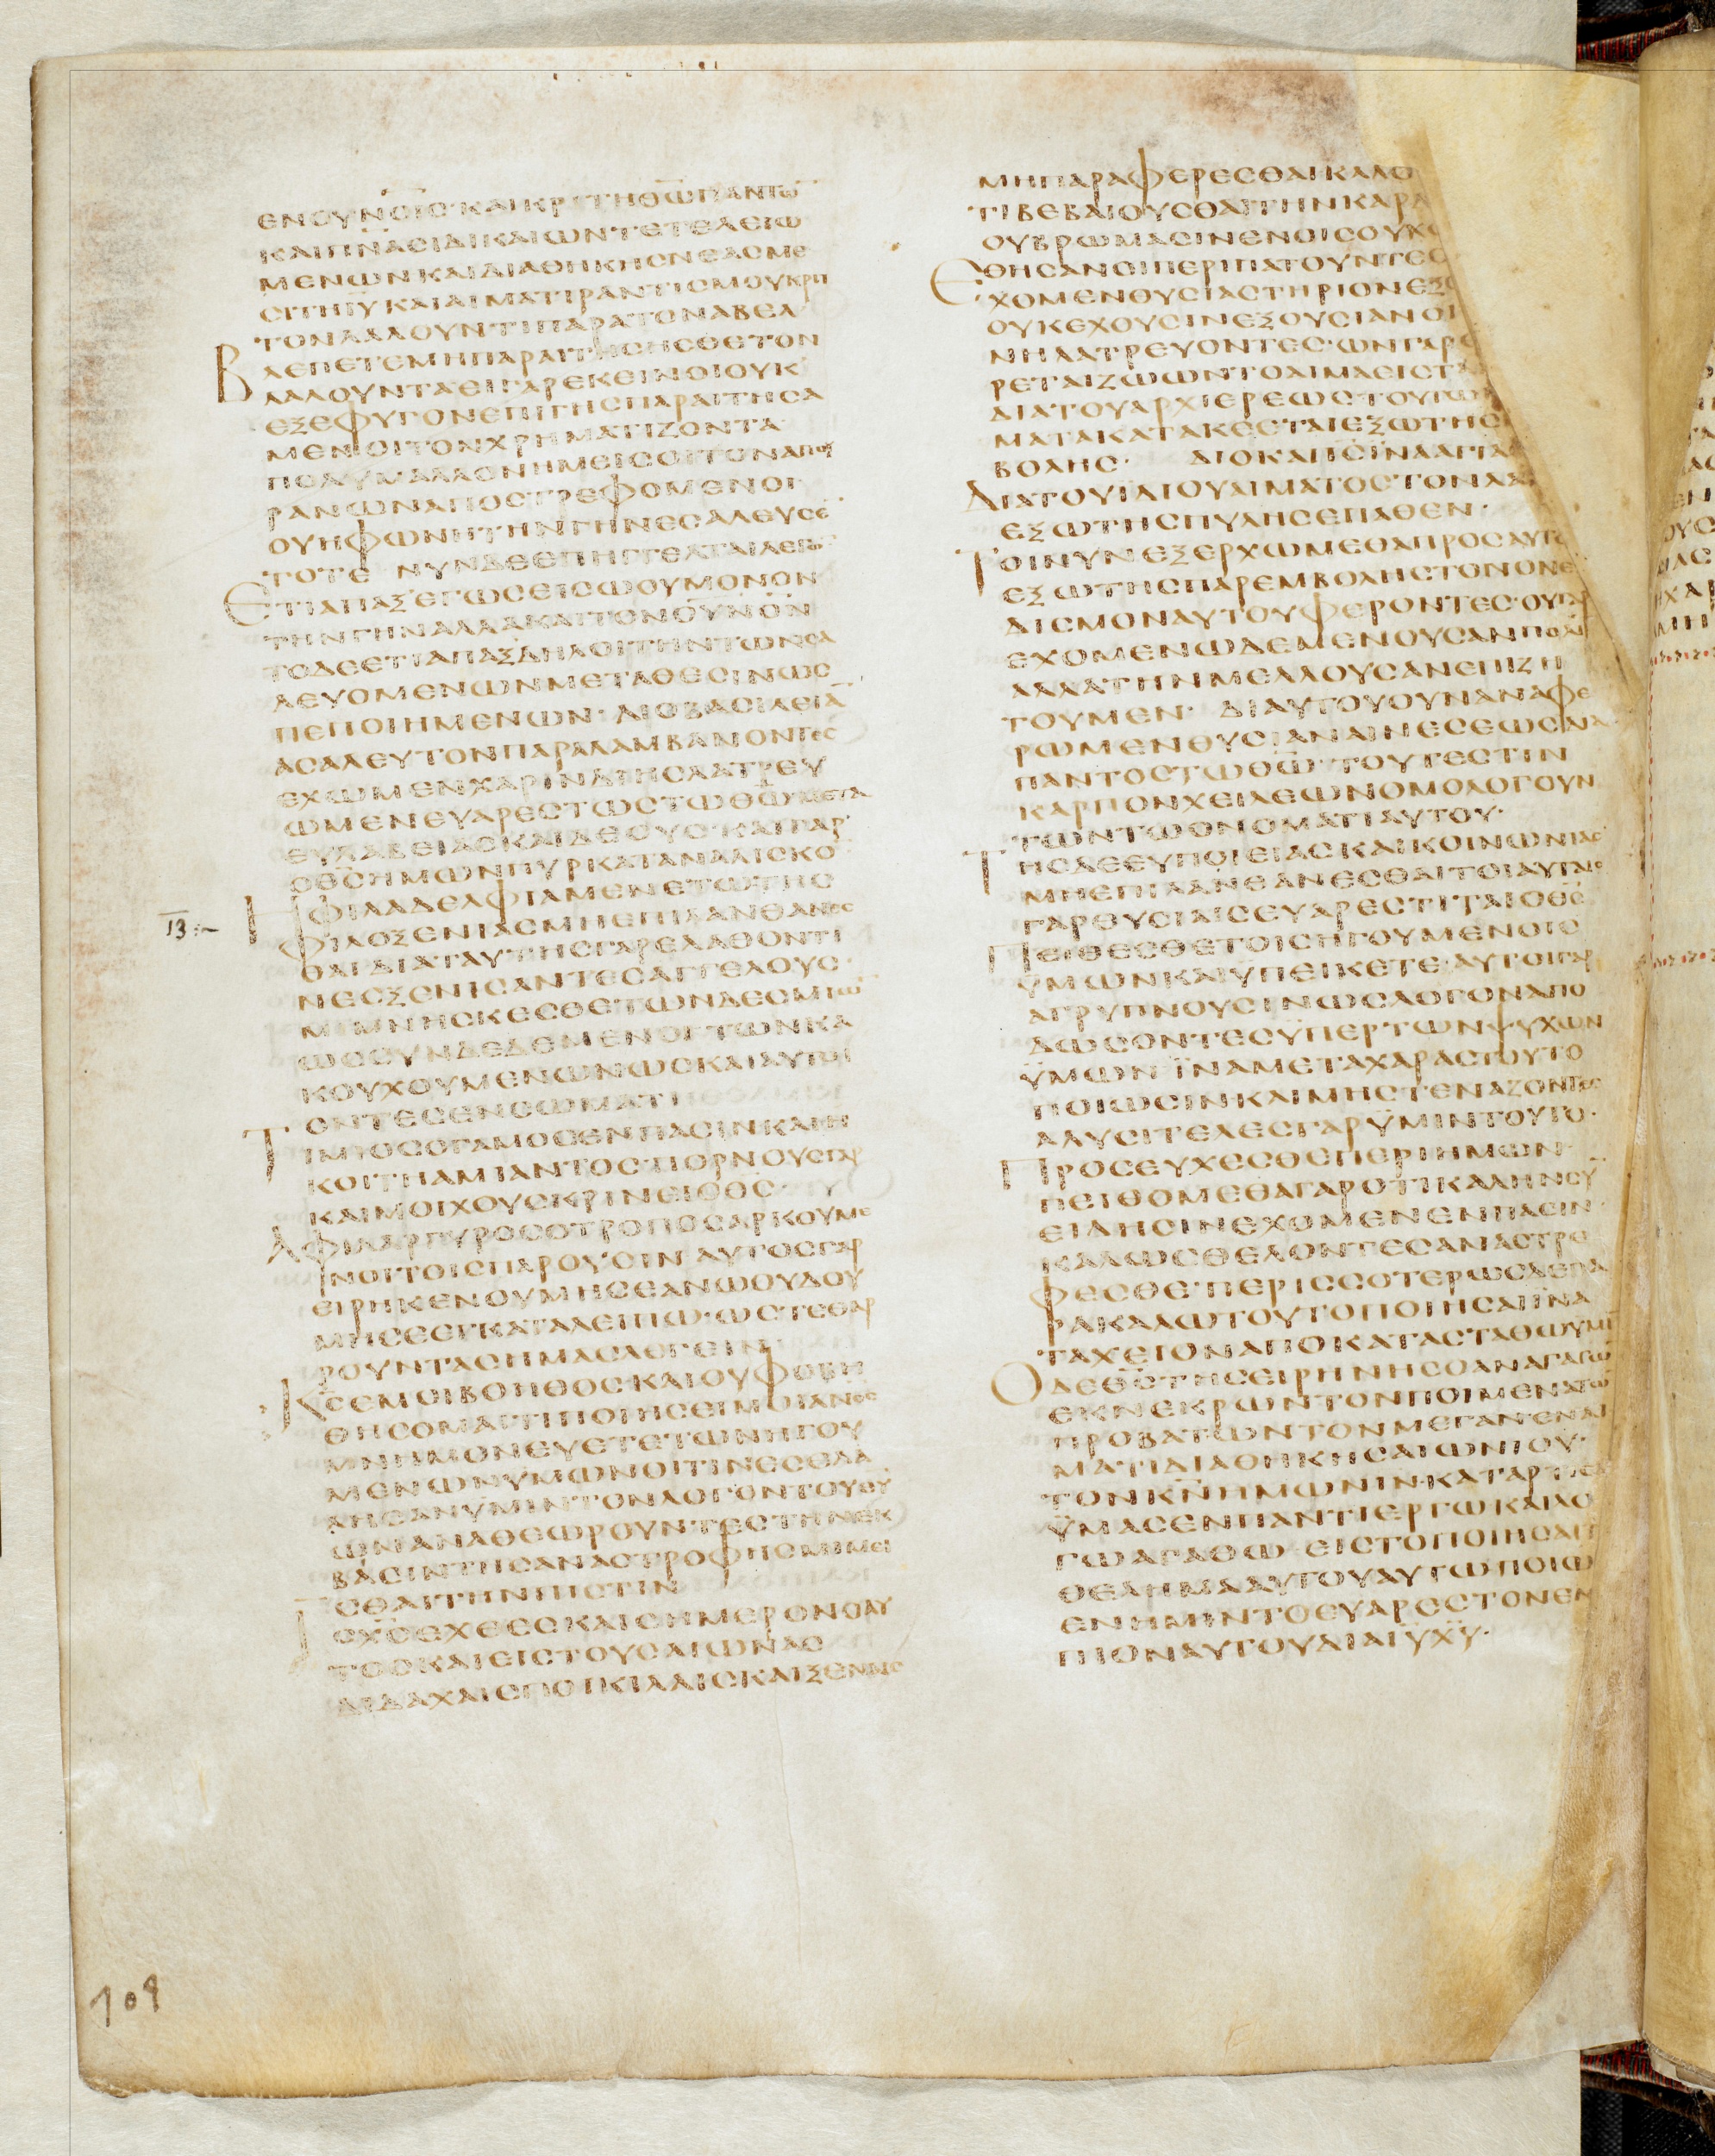 ΕΝΟΥΝΟΙϹ·ΚΑΙΚΡΙΤΗΘΩΠΑΝΤΩ
ΚΑΙΠΝΑϹΙΔΙΚΑΙΩΝΤΕΤΕΛΕΙΩ
ΜΕΝΩΝΚΑΙΔΙΑΘΗΚΗϹΝΕΑϹΜΕ
ϹΙΤΗΙΥΚΑΙΑΙΜΑΤΙΡΑΝΤΙϹΜΟΥΚΡΙΤ
ΤΟΝΛΑΛΟΥΝΤΙΠΑΡΑΤΟΝΑΒΕΛ
ΒΛΕΠΕΤΕΜΗΠΑΡΑΙΤΗϹΗϹΘΕΤΟΝ
ΛΑΛΟΥΝΤΑΕΙΓΑΡΕΚΕΙΝΟΙΟΥΚ
ΕΞΕΦΥΓΟΝΕΠΙΓΗϹΠΑΡΑΙΤΗϹΑ
ΜΕΝΟΙΤΟΝΧΡΗΜΑΤΙΖΟΝΤΑ·
ΠΟΛΥΜΑΛΛΟΝΗΜΕΙϹΟΙΤΟΝΑΠΟΥ
ΡΑΝΩΝΑΠΟϹΤΡΕΦΟΜΕΝΟΙ·
ΟΥΗΦΩΝΗΤΗΝΓΗΝΕϹΑΛΕΥϹΕ
ΤΟΤΕ ΝΥΝΔΕΕΠΗΓΓΕΛΤΑΙΛΕΓΩ
ΕΤΙΑΠΑΞΕΓΩϹΕΙϹΩΟΥΜΟΝΟΝ
ΤΗΝΓΗΝΑΛΛΑΚΑΙΤΟΝΟΥΝΟΝ
ΤΟΔΕΕΤΙΑΠΑΞΔΗΛΟΙΤΗΝΤΩΝϹΑ
ΛΕΥΟΜΕΝΩΝΜΕΤΑΘΕϹΙΝΩϹ
ΠΕΠΟΙΗΜΕΝΩΝ·ΔΙΟΒΑϹΙΛΕΙΑ
ΑϹΑΛΕΥΤΟΝΠΑΡΑΛΑΜΒΑΝΟΝΤΕϹ
ΕΧΩΜΕΝΧΑΡΙΝΔΙΗϹΛΑΤΡΕΥ
ΩΜΕΝΕΥΑΡΕϹΤΩϹΤΩΘΩΜΕΤΑ
ΕΥΛΑΒΕΙΑϹΚΑΙΔΕΟΥϹ·ΚΑΙΓΑΡ
ΟΘϹΗΜΩΝΠΥΡΚΑΤΑΝΑΛΙϹΚΟ
ΗΦΙΛΑΔΕΛΦΙΑΜΕΝΕΤΩΤΗϹ
13:~
ΦΙΛΟΞΕΝΙΑϹΜΗΕΠΙΛΑΝΘΑΝΕϹ
ΘΑΙΔΙΑΤΑΥΤΗϹΓΑΡΕΛΑΘΟΝΤΙ
ΝΕϹΞΕΝΙϹΑΝΤΕϹΑΓΓΕΛΟΥϹ·
ΜΙΜΝΗϹΚΕϹΘΕΤΩΝΔΕϹΜΙΩ
ΩϹϹΥΝΔΕΔΕΜΕΝΟΙ·ΤΩΝΚΑ
ΚΟΥΧΟΥΜΕΝΩΝΩϹΚΑΙΑΥΤΟΙ
ΟΝΤΕϹΕΝϹΩΜΑΤΙ
ΤΙΜΙΟϹΟΓΑΜΟϹΕΝΠΑϹΙΝΚΑΙΗ
ΚΟΙΤΗΑΜΙΑΝΤΟϹ·ΠΟΡΝΟΥϹΓΑΡ
ΚΑΙΜΟΙΧΟΥϹΚΡΙΝΕΙΟΘϹ·
ΑΦΙΛΑΡΓΥΡΟϹΟΤΡΟΠΟϹΑΡΚΟΥΜΕ
ΝΟΙΤΟΙϹΠΑΡΟΥϹΙΝ ΑΥΤΟϹΓΑΡ
ΕΙΡΗΚΕΝΟΥΜΗϹΕΑΝΩΟΥΔΟΥ
ΜΗϹΕΕΓΚΑΤΑΛΕΙΠΩ·ΩϹΤΕΘΑΡ
ΡΟΥΝΤΑϹΗΜΑϹΛΕΓΕΙΝ
ΚϹΕΜΟΙΒΟΗΘΟϹ·ΚΑΙΟΥΦΟΒΗ
ΘΗϹΟΜΑΙΤΙΠΟΙΗϹΕΙΜΟΙΑΝΟϹ
ΜΝΗΜΟΝΕΥΕΤΕΤΩΝΗΓΟΥ
ΜΕΝΩΝΥΜΩΝΟΙΤΙΝΕϹΕΛΑ
ΛΗϹΑΝΫΜΙΝΤΟΝΛΟΓΟΝΤΟΥΘΥ
ΩΝΑΝΑΘΕΩΡΟΥΝΤΕϹΤΗΝΕΚ
ΒΑϹΙΝΤΗϹΑΝΑϹΤΡΟΦΗϹΜΙΜΕΙ
ϹΘΑΙΤΗΝΠΙϹΤΙΝ
ΙϹΧϹΕΧΘΕϹΚΑΙϹΗΜΕΡΟΝΟΑΥ
ΤΟϹΚΑΙΕΙϹΤΟΥϹΑΙΩΝΑϹ
ΔΙΔΑΧΑΙϹΠΟΙΚΙΛΑΙϹΚΑΙΞΕΝΑΙϹ
ΜΗΠΑΡΑΦΕΡΕϹΘΑΙΚΑΛΟ
ΤΙΒΕΒΑΙΟΥϹΘΑΙΤΗΝΚΑΡΔ
ΟΥΒΡΩΜΑϹΙΝΕΝΟΙϹΟΥΚ
ΘΗϹΑΝΟΙΠΕΡΙΠΑΤΟΥΝΤΕϹ
ΕΧΟΜΕΝΘΥϹΙΑϹΤΗΡΙΟΝΕΞ
ΟΥΚΕΧΟΥϹΙΝΕΞΟΥϹΙΑΝΟΙ
ΝΗΛΑΤΡΕΥΟΝΤΕϹ·ΩΝΓΑΡ
ΡΕΤΑΙΖΩΩΝΤΟΑΙΜΑΕΙϹΤ
ΔΙΑΤΟΥΑΡΧΙΕΡΕΩϹΤΟΥΤΩ
ΜΑΤΑΚΑΤΑΚΕΕΤΑΙΕΞΩΤΗϹ
ΒΟΛΗϹ· ΔΙΟΚΑΙΙϹΪΝΑΑΓΙΑ
ΔΙΑΤΟΥΙΔΙΟΥΑΙΜΑΤΟϹΤΟΝΛΑ
ΕΞΩΤΗϹΠΥΛΗϹΕΠΑΘΕΝ·
ΤΟΙΝΥΝΕΞΕΡΧΩΜΕΘΑΠΡΟϹΑΥΤΟ
ΕΞΩΤΗϹΠΑΡΕΜΒΟΛΗϹΤΟΝΟΝΕ
ΔΙϹΜΟΝΑΥΤΟΥΦΕΡΟΝΤΕϹ·ΟΥΓΑΡ
ΕΧΟΜΕΝΩΔΕΜΕΝΟΥϹΑΝΠΟΛΙ
ΑΛΛΑΤΗΝΜΕΛΛΟΥϹΑΝΕΠΙΖΗ
ΤΟΥΜΕΝ· ΔΙΑΥΤΟΥΟΥΝΑΝΑΦΕ
ΡΩΜΕΝΘΥϹΙΑΝΑΙΝΕϹΕΩϹΔΙΑ
ΠΑΝΤΟϹΤΩΘΩ·ΤΟΥΤΕϹΤΙΝ
ΚΑΡΠΟΝΧΕΙΛΕΩΝΟΜΟΛΟΓΟΥΝ
ΤΩΝΤΩΟΝΟΜΑΤΙΑΥΤΟΥ·
ΤΗϹΔΕΕΥΠΟΙΕΙΑϹΚΑΙΚΟΙΝΩΝΙΑϹ
ΜΗΕΠΙΛΑΝΘΑΝΕϹΘΑΙΤΟΙΑΥΤΑΙϹ
ΓΑΡΘΥϹΙΑΙϹΕΥΑΡΕϹΤΙΤΑΙΟΘϹ
ΠΕΙΘΕϹΘΕΤΟΙϹΗΓΟΥΜΕΝΟΙϹ
ΫΜΩΝΚΑΙΫΠΕΙΚΕΤΕ·ΑΥΤΟΙΓΑΡ
ΑΓΡΥΠΝΟΥϹΙΝΩϹΛΟΓΟΝΑΠΟ
ΔΩϹΟΝΤΕϹΫΠΕΡΤΩΝΨΥΧΩΝ
ΫΜΩΝ ΪΝΑΜΕΤΑΧΑΡΑϹΤΟΥΤΟ
ΠΟΙΩϹΙΝΚΑΙΜΗϹΤΕΝΑΖΟΝΤΕϹ
ΑΛΥϹΙΤΕΛΕϹΓΑΡΫΜΙΝΤΟΥΤΟ·
ΠΡΟϹΕΥΧΕϹΘΕΠΕΡΙΗΜΩΝ·
ΠΕΙΘΟΜΕΘΑΓΑΡΟΤΙΚΑΛΗΝϹΥ
ΕΙΔΗϹΙΝΕΧΟΜΕΝΕΝΠΑϹΙΝ·
ΚΑΛΩϹΘΕΛΟΝΤΕϹΑΝΑϹΤΡΕ
ΦΕϹΘΕ·ΠΕΡΙϹϹΟΤΕΡΩϹΔΕΠΑ
ΡΑΚΑΛΩΤΟΥΤΟΠΟΙΗϹΑΙΪΝΑ
ΤΑΧΕΙΟΝΑΠΟΚΑΤΑϹΤΑΘΩΥΜΙ
ΟΔΕΘϹΤΗϹΕΙΡΗΝΗϹΟΑΝΑΓΑΓΩ
ΕΚΝΕΚΡΩΝΤΟΝΠΟΙΜΕΝΑΤΩ
ΠΡΟΒΑΤΩΝΤΟΝΜΕΓΑΝ·ΕΝΑΙ
ΜΑΤΙΔΙΑΘΗΚΗϹΑΙΩΝΙΟΥ·
ΤΟΝΚΝΗΜΩΝΙΝ·ΚΑΤΑΡΤΙϹΑΙ
ΫΜΑϹΕΝΠΑΝΤΙΕΡΓΩΚΑΙΛΟ
ΓΩΑΓΑΘΩ·ΕΙϹΤΟΠΟΙΗϹΑΙΤ
ΘΕΛΗΜΑΑΥΤΟΥΑΥΤΩΠΟΙΩ
ΕΝΗΜΙΝΤΟΕΥΑΡΕϹΤΟΝΕΝ
ΠΙΟΝΑΥΤΟΥΔΙΑΙΥΧΥ·
109